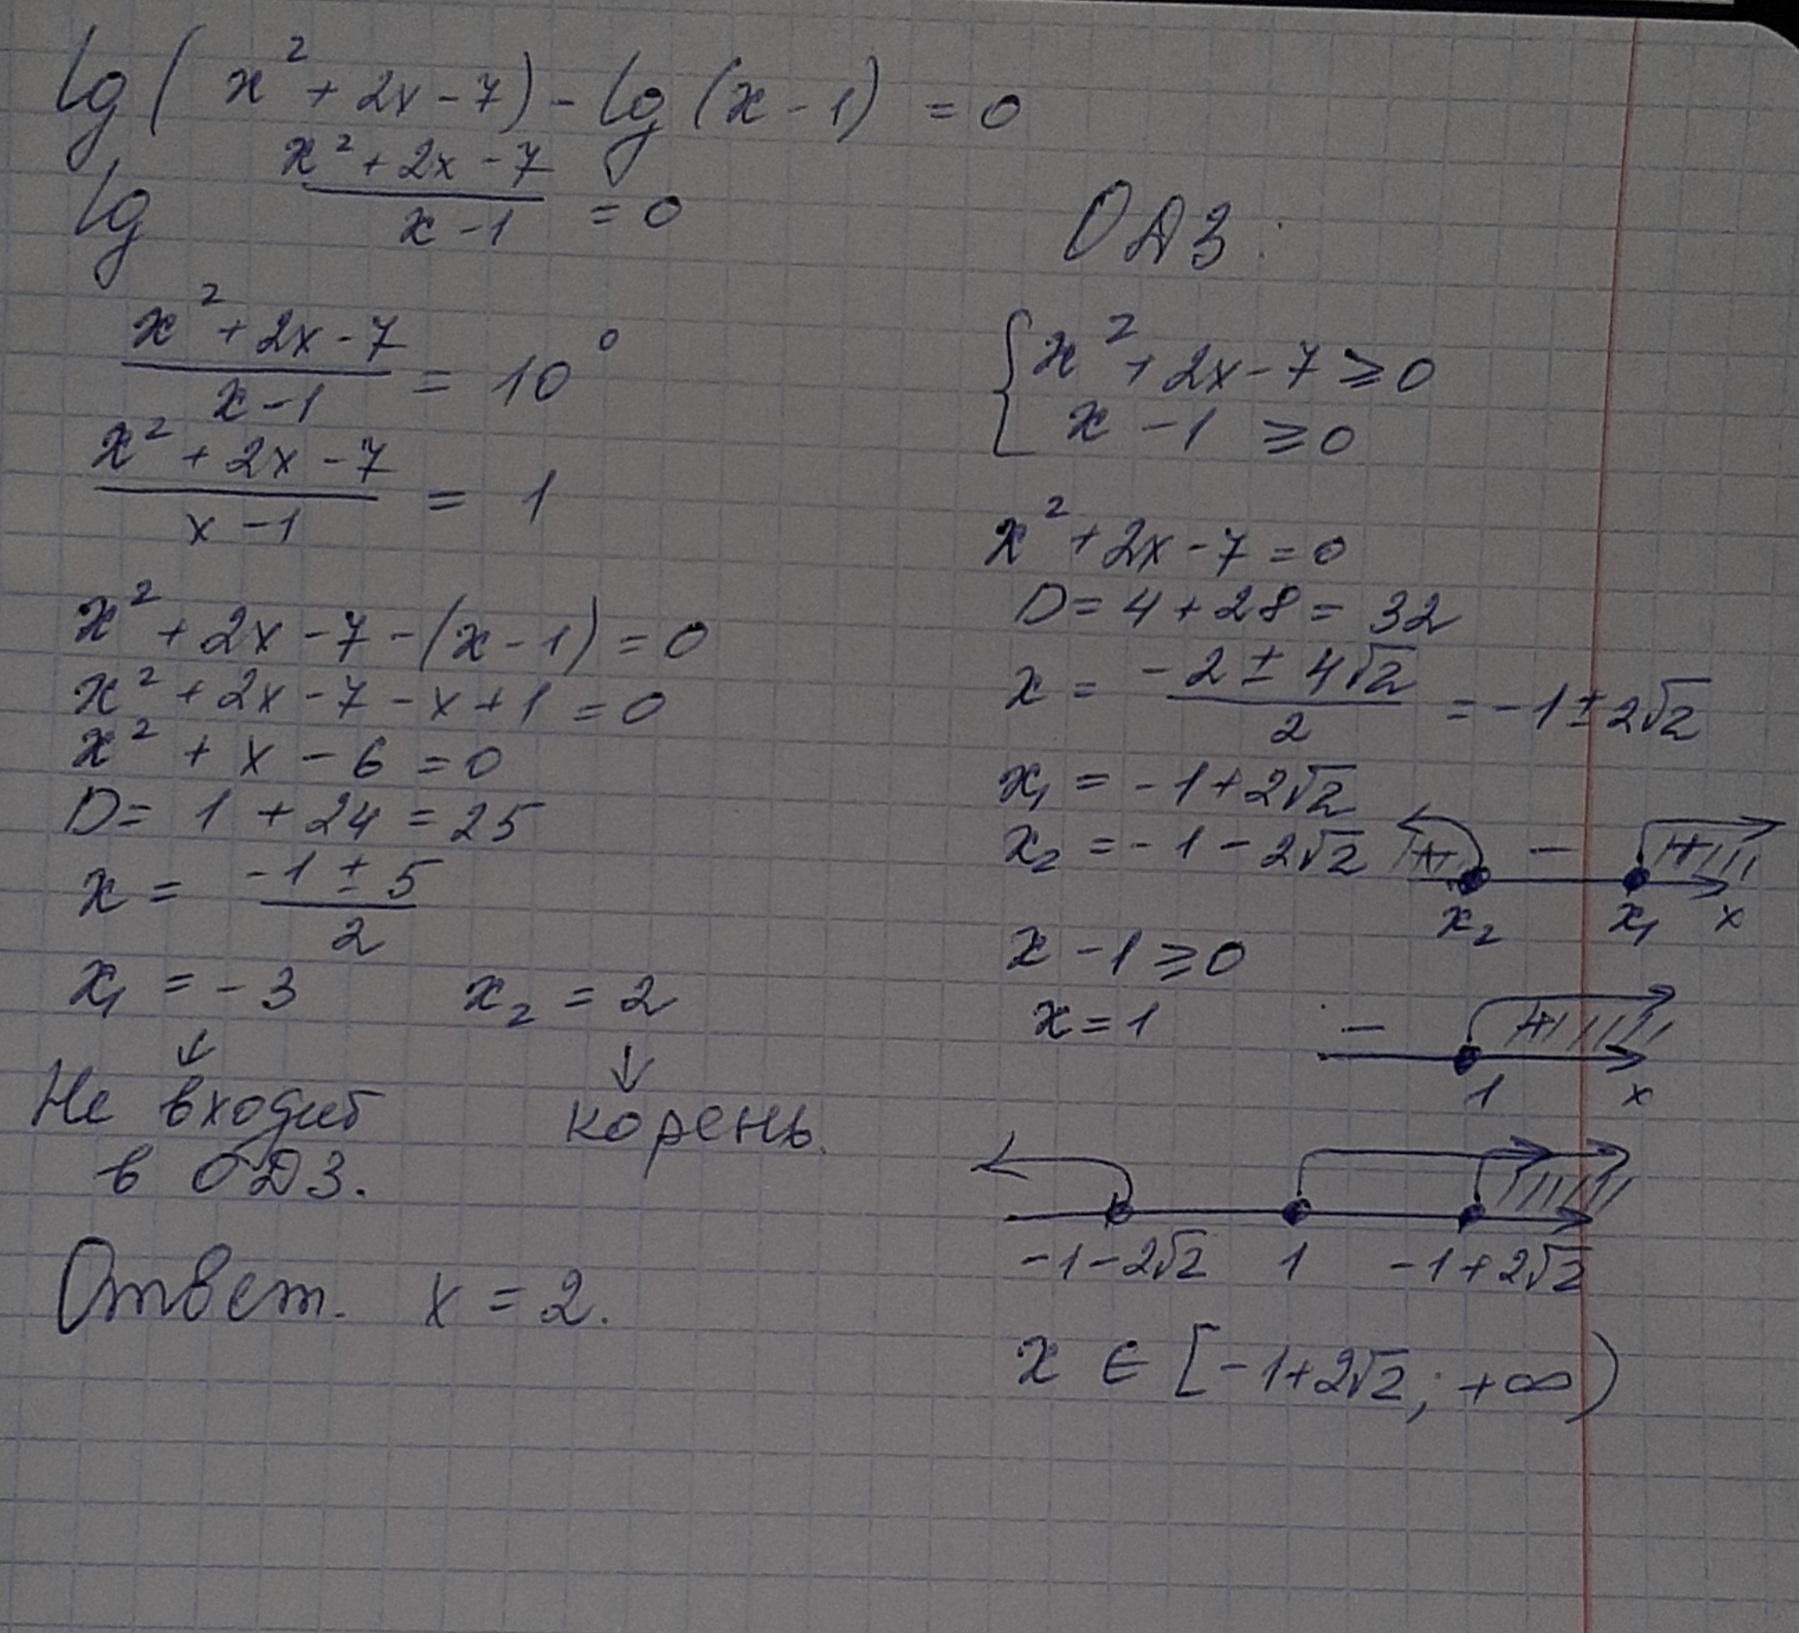 lg(x² + 2x - 7) - lg(x - 1) = 0
lg (x² + 2x - 7)/(x - 1) = 0
(x² + 2x - 7)/(x - 1) = 10⁰
(x² + 2x - 7)/(x - 1) = 1
x² + 2x - 7 - (x - 1) = 0
x² + 2x - 7 - x + 1 = 0
x² + x - 6 = 0
D = 1 + 24 = 25
x = (-1 ± 5)/2
x₁ = -3 x₂ = 2
↓ ↓
Не входит корень.
в ОДЗ.
Ответ. x = 2.
ОДЗ:
{ x² + 2x - 7 ≥ 0
x - 1 ≥ 0
x² + 2x - 7 = 0
D = 4 + 28 = 32
x = (-2 ± 4√2)/2 = -1 ± 2√2
x₁ = -1 + 2√2
x₂ = -1 - 2√2
+ - +
x₂ x₁ x
x - 1 ≥ 0
x = 1
- +
1 x
-1-2√2 1 -1+2√2
x ∈ [-1+2√2; +∞)